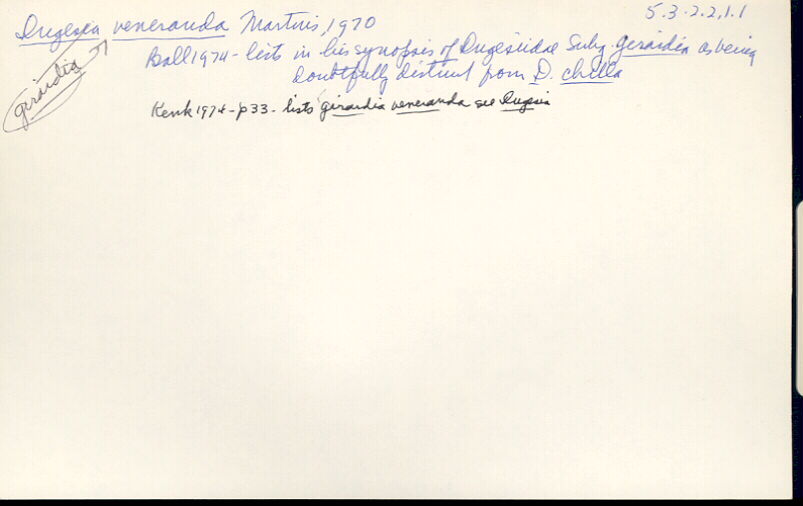 5.3.2.2.1.1
Dugesia veneranda Martins, 1970
girardia
Ball 1974 - lists in his synopsis of Dugesiidae Subg. girardia as being
doubtfully distinct from D. chilla
Kenk 1974 - p33 - lists girardia veneranda see Dugesia